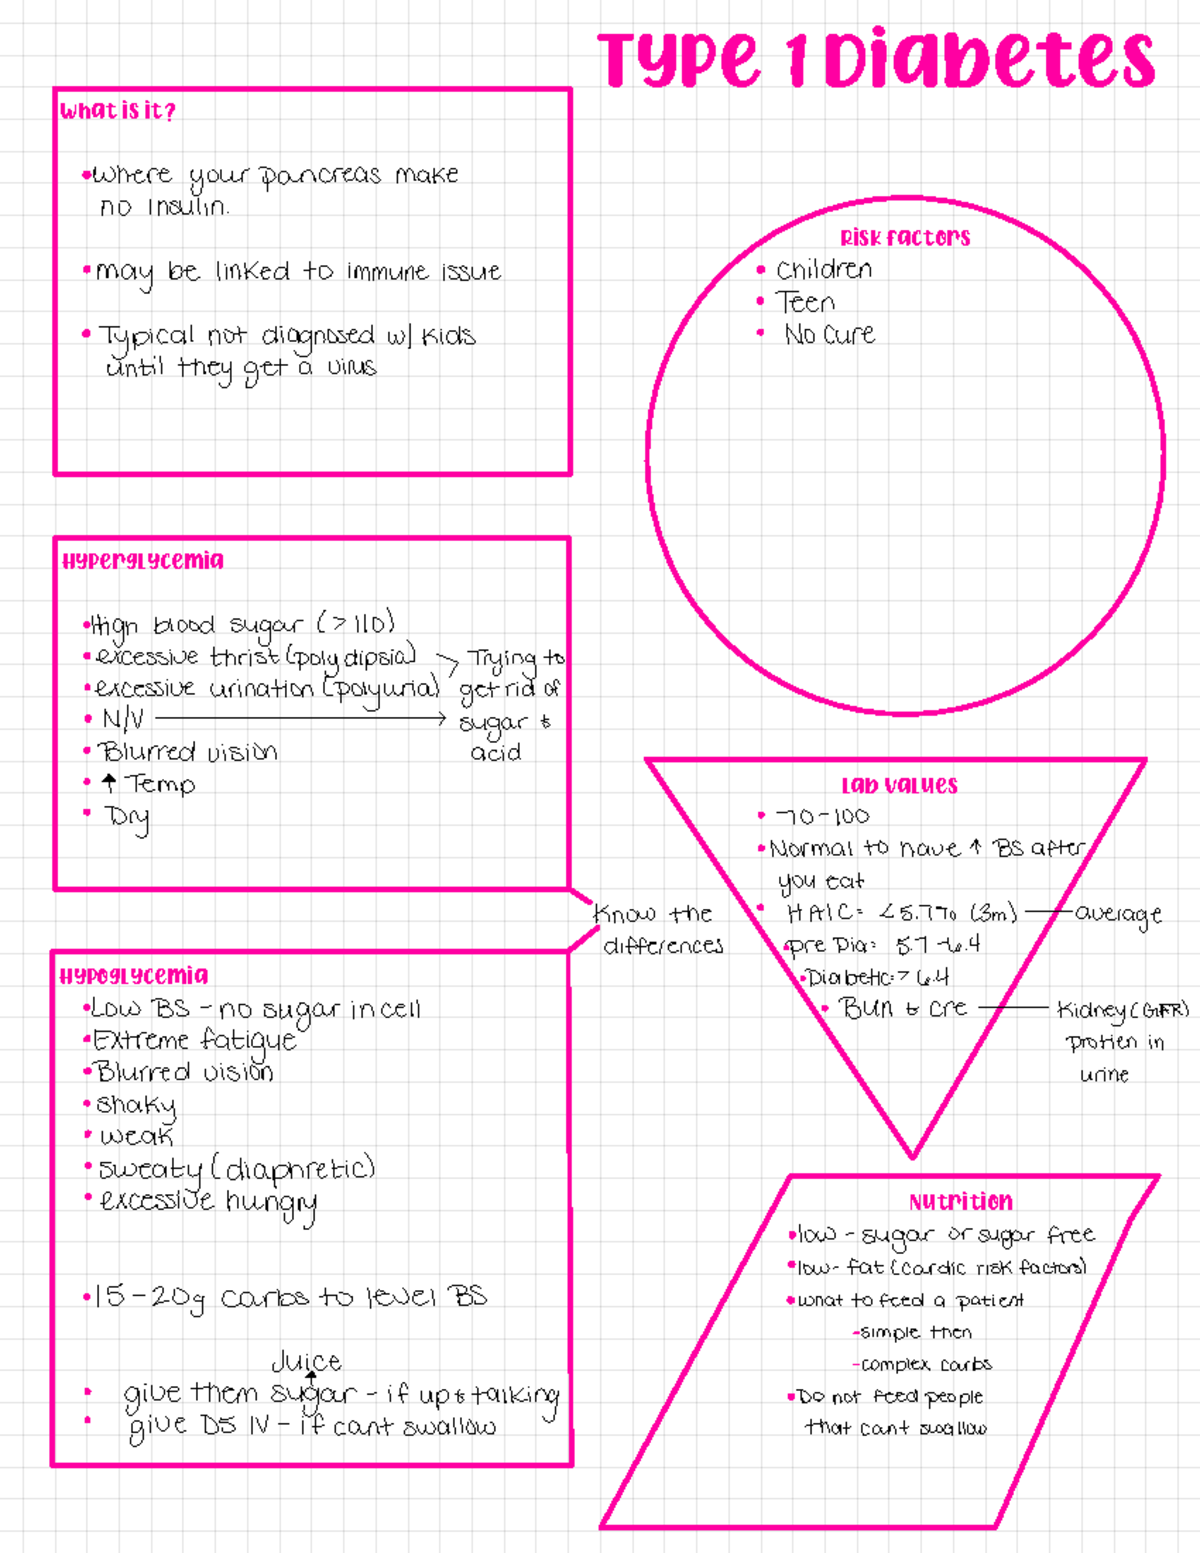 Type 1 Diabetes
What is it?
•Where your pancreas make
no insulin.
•may be linked to immune issue
•Typical not diagnosed w/ kids
until they get a virus
Risk factors
• Children
• Teen
• No Cure
Hyperglycemia
•High blood sugar (>110)
•excessive thrist (polydipsia) Trying to
•excessive urination (polyuria) get rid of
• N/V sugar &
• Blurred vision acid
• ↑ Temp
• Dry
Know the
differences
Lab Values
• 70-100
•Normal to have ↑ BS after
you eat
• HA1C: <5.7% (3m) — average
•pre Dia: 5.7-6.4
•Diabetic:> 6.4
• BUN & cre — Kidney (GFR)
protien in
urine
Hypoglycemia
•Low BS - no sugar in cell
•Extreme fatigue
•Blurred vision
•shaky
•weak
•sweaty (diaphretic)
•excessive hungry
•15-20g carbs to level BS
Juice
↑
• give them sugar - if up & talking
• give D5 IV - if cant swallow
Nutrition
•low - sugar or sugar free
•low- fat (cardic risk factors)
•what to feed a patient
-simple then
-complex carbs
•Do not feed people
that cant swallow